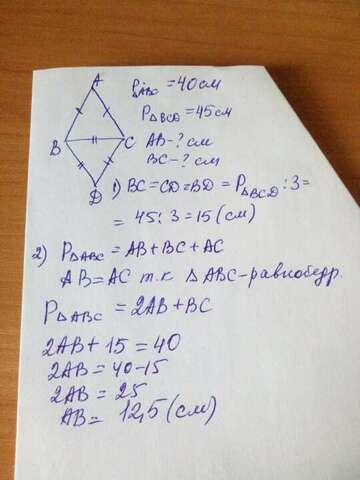 A
P△ABC = 40 см
P△BCD = 45 см
B
C
AB - ? см
BC - ? см
D
1) BC = CD = BD = P△BCD : 3 =
= 45 : 3 = 15 (см)
2) P△ABC = AB + BC + AC
AB = AC т.к △ABC - равнобедр.
P△ABC = 2AB + BC
2AB + 15 = 40
2AB = 40 - 15
2AB = 25
AB = 12,5 (см)